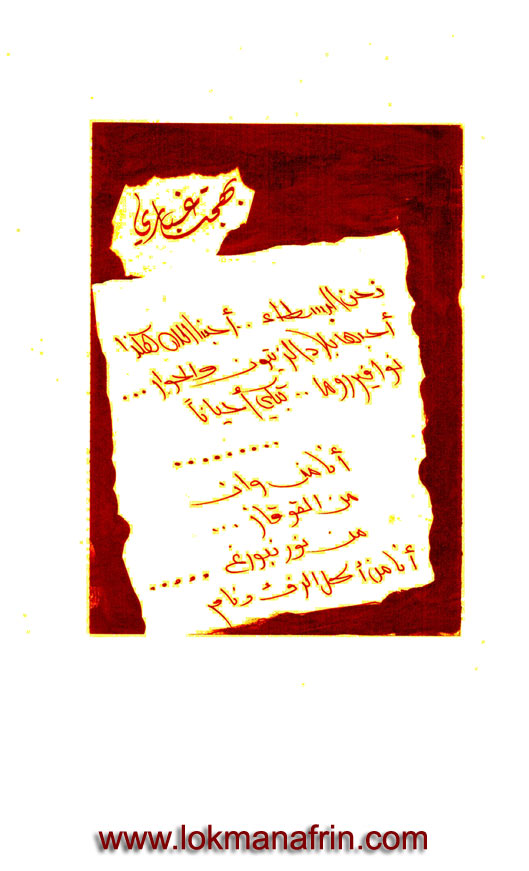 بهجت غباري
نحن البسطاء .. أحببنا الله هكذا
أحبها بلاد الزيتون والحوار ...
نوافير روما ... تبكي أحياناً
..........
أنا من وان
من القوقاز ...
من نور نبورغ .....
أنا من أكحل الزفت ونام
www.lokmanafrin.com